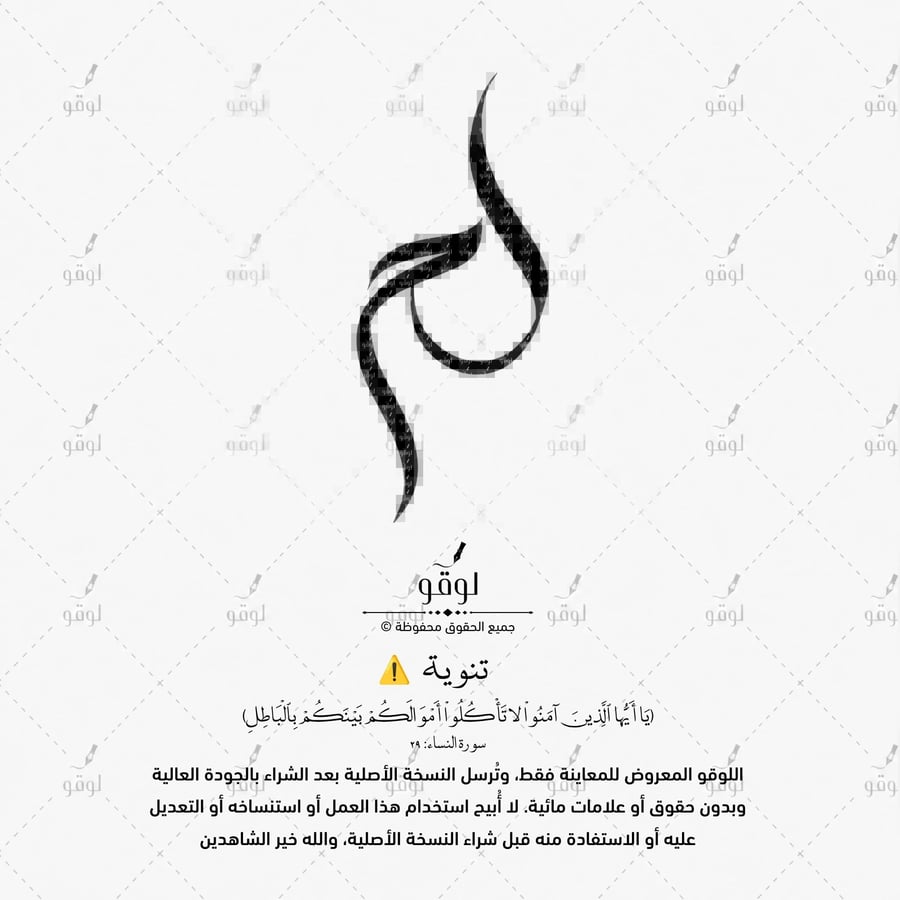 لوقو
جميع الحقوق محفوظة ©
تنوية ⚠️
(يَا أَيُّهَا الَّذِينَ آمَنُوا۟ لَا تَأْكُلُوا۟ أَمْوَالَكُمْ بَيْنَكُمْ بِالْبَاطِلِ)
سورة النساء: ٢٩
اللوقو المعروض للمعاينة فقط، وتُرسل النسخة الأصلية بعد الشراء بالجودة العالية
وبدون حقوق أو علامات مائية. لا أُبيح استخدام هذا العمل أو استنساخه أو التعديل
عليه أو الاستفادة منه قبل شراء النسخة الأصلية، والله خير الشاهدين